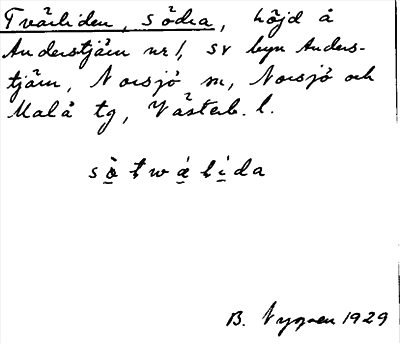 Tvärliden, södra, höjd å
Anderstjärn nr 1, sv byn Anders-
tjärn, Norsjö sn, Norsjö och
Malå tg, Västerb. l.
B. Nygren 1929